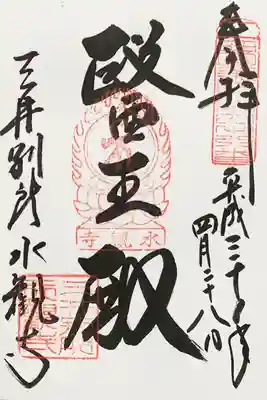 奉拝
平成三十年
四月二十八日
医王殿
水観寺
三井別所 水観寺